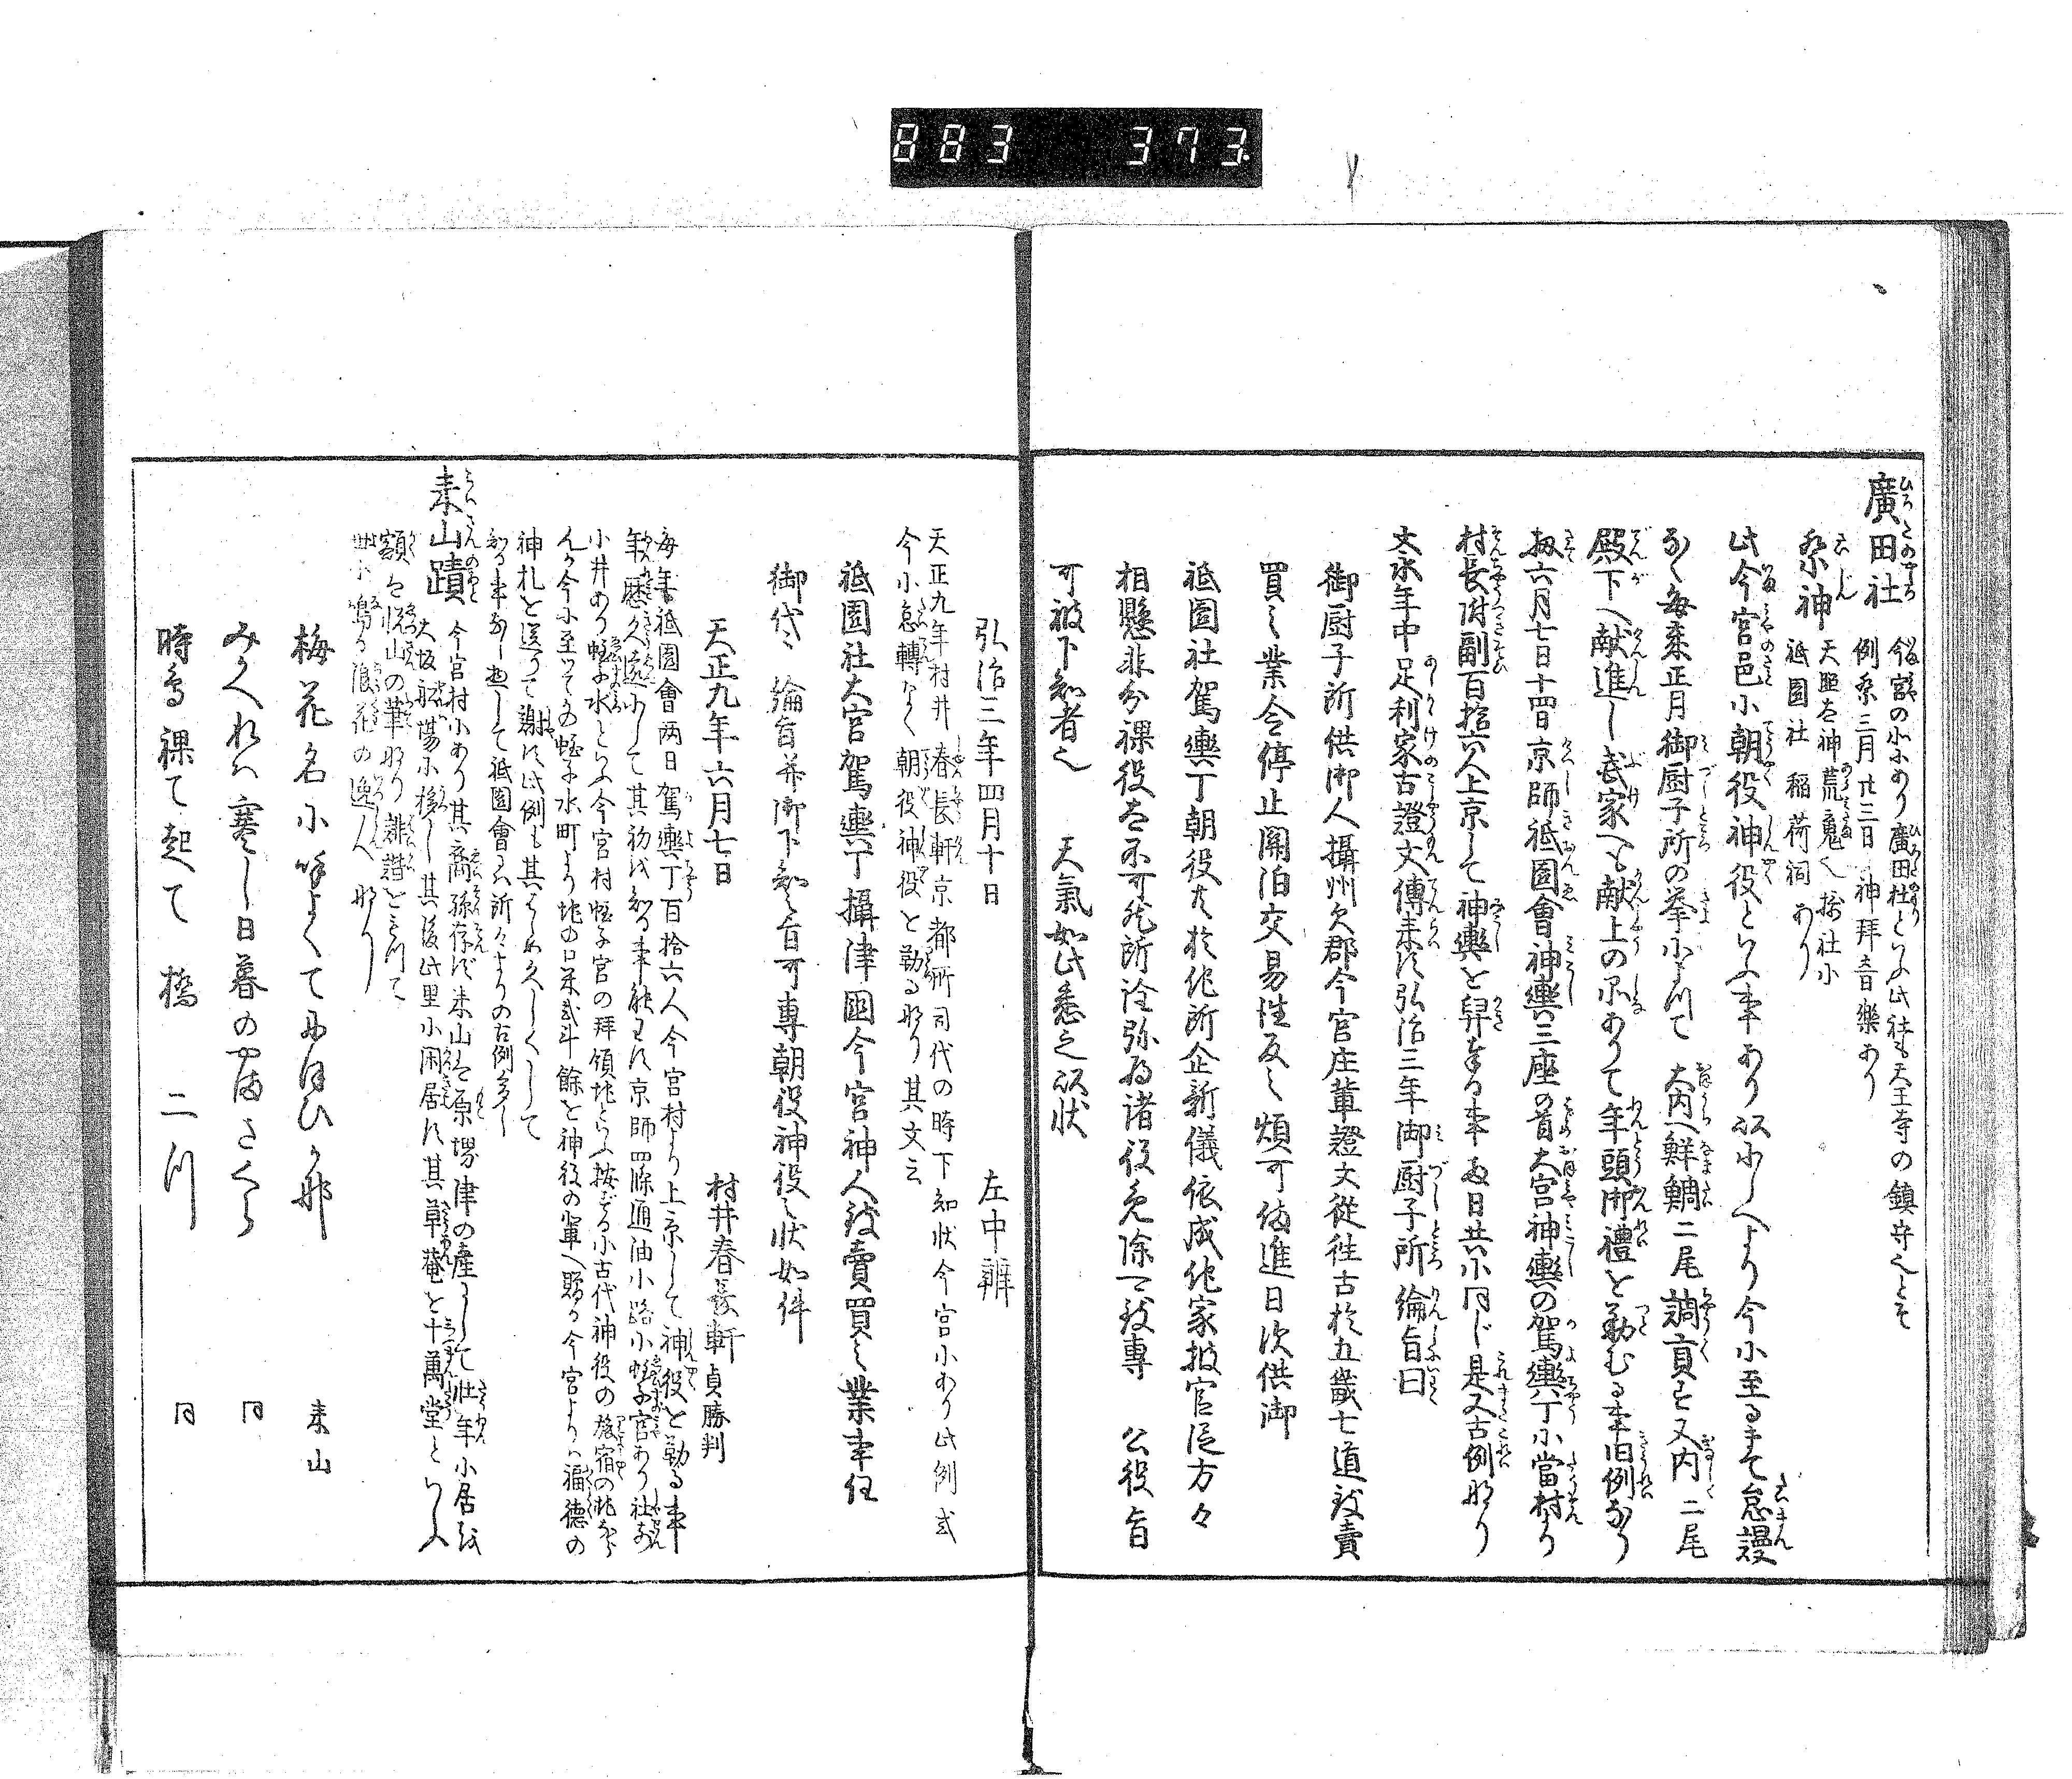 883 373
廣田社
今宮の北にあり廣田杜といふ此社も天王寺の鎮守也とそ
例祭三月廿三日 神拜音樂あり
祭神 天照太神荒魂也 攝社に
祇園社 稲荷祠 あり
此今宮邑に朝役神役といふ事あり以にしへより今に至るまて怠謾
なく毎歳正月御厨子所の挙によつて 大内へ鮮鯛二尾調貢す又内 二尾
殿下へ献進し武家へも献上の品ありて年頭御禮を勤むる事旧例なり
扨六月七日十四日京師祇園會神輿三座の首大宮神輿の駕輿丁に當村より
村長附副百拾六人上京して神輿を舁奉る事両日共に同じ是又古例なり
文永年中足利家古證文傳来す弘治三年御厨子所綸旨曰
御厨子所供御人攝州欠郡今宮庄輩證文從往古於五畿七道致賣
買之業令停止關泊交易性反之煩可備進日次供御
祇園社駕輿丁朝役於他所企新儀依成他家披官從方々
相懸非分課役 不可然所詮弥為諸役免除可致專 公役旨
可被下知者也 天氣如此悉之以状
弘治三年四月十日 左中辨
天正九年村井春長軒京都所司代の時下知状今宮にあり此例式
今に怠轉なく朝役神役を勤る也り其文云
祇園社大宮駕輿丁攝津國今宮神人致賣買之業事任
御代々綸旨并御下知之旨可專朝役神役之状如件
天正九年六月七日 村井春長軒貞勝判
毎年祇園會両日駕輿丁百拾六人今宮村より上京して神役を勤る事
年歴久遠にして其初を知る事能はす京師四條通油小路に蛭子宮あり社前
に井あり蛭子水といふ今宮村蛭子宮の拜領地といふ按ずるに古代神役の旅宿の地なら
んか今に至つてその蛭子水町より地の口米弐斗餘を神役の輩へ賜る今宮よりハ福徳の
神札を送つて謝す此例も其はしめ久しくして
知る事なし惣して祇園會は所々よりの古例多し
来山蹟 今宮村にあり其裔孫存す来山は原堺津の産にして壮年に居を
大坂船場に移し其後此里に閑居す其草菴を十萬堂といふ
額は悦山の筆なり誹諧をもつて
世に鳴る浪花の逸人なり
梅花名に呼よくてにほひかな 来山
みかへれハ寒し日暮の山さくら 同
時鳥裸て起て橋二つ 同